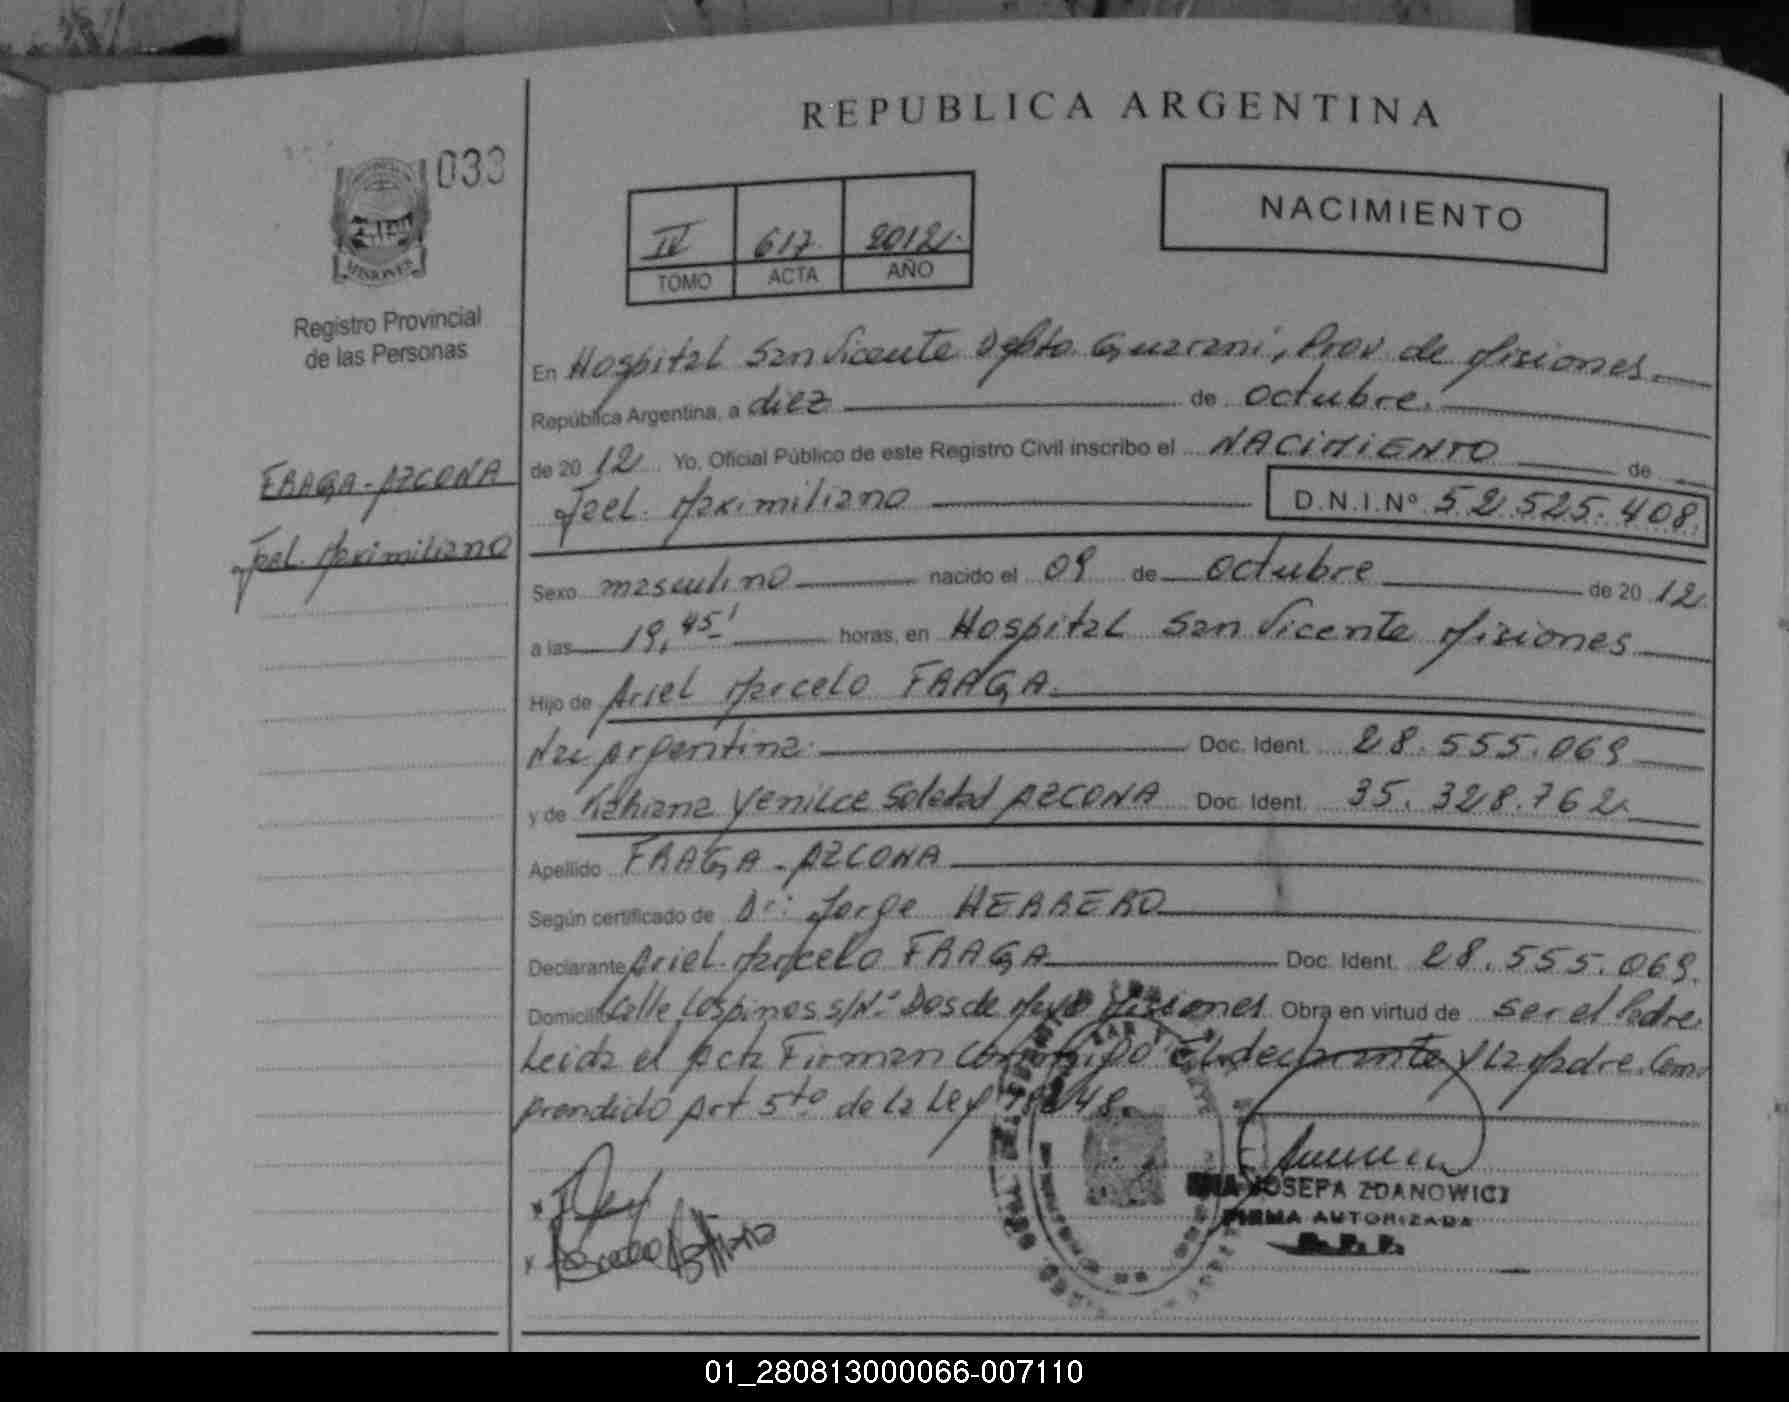 REPUBLICA ARGENTINA
033
NACIMIENTO
IV 617 2012
TOMO ACTA AÑO
MISIONES
Registro Provincial
de las Personas
FRAGA-AZCONA
Joel Maximiliano
En Hospital San Vicente Dpto. Guarani, Prov de Misiones
República Argentina, a diez de octubre.
de 20 12 Yo, Oficial Público de este Registro Civil inscribo el NACIMIENTO de
Joel Maximiliano D.N.I.Nº 52.525.408.
Sexo masculino nacido el 09 de octubre de 20 12
a las 19,45' horas, en Hospital San Vicente Misiones
Hijo de Ariel Marcelo FRAGA
Nac Argentina Doc. Ident. 28.555.069
y de Yenilce Soledad AZCONA Doc. Ident. 35.328.762
Apellido FRAGA-AZCONA
Según certificado de Dr: Jorge HERRERO
Declarante Ariel Marcelo FRAGA Doc. Ident. 28.555.069.
Domicilio Calle Los pinos s/Nº Dos de Mayo Misiones Obra en virtud de ser el Padre.
Leida el Acta Firman Conmigo El declarante y La Madre. Com-
prendido Art 5to de la Ley
JOSEFA ZDANOWICZ
FIRMA AUTORIZADA
R.P.P.
01_280813000066-007110